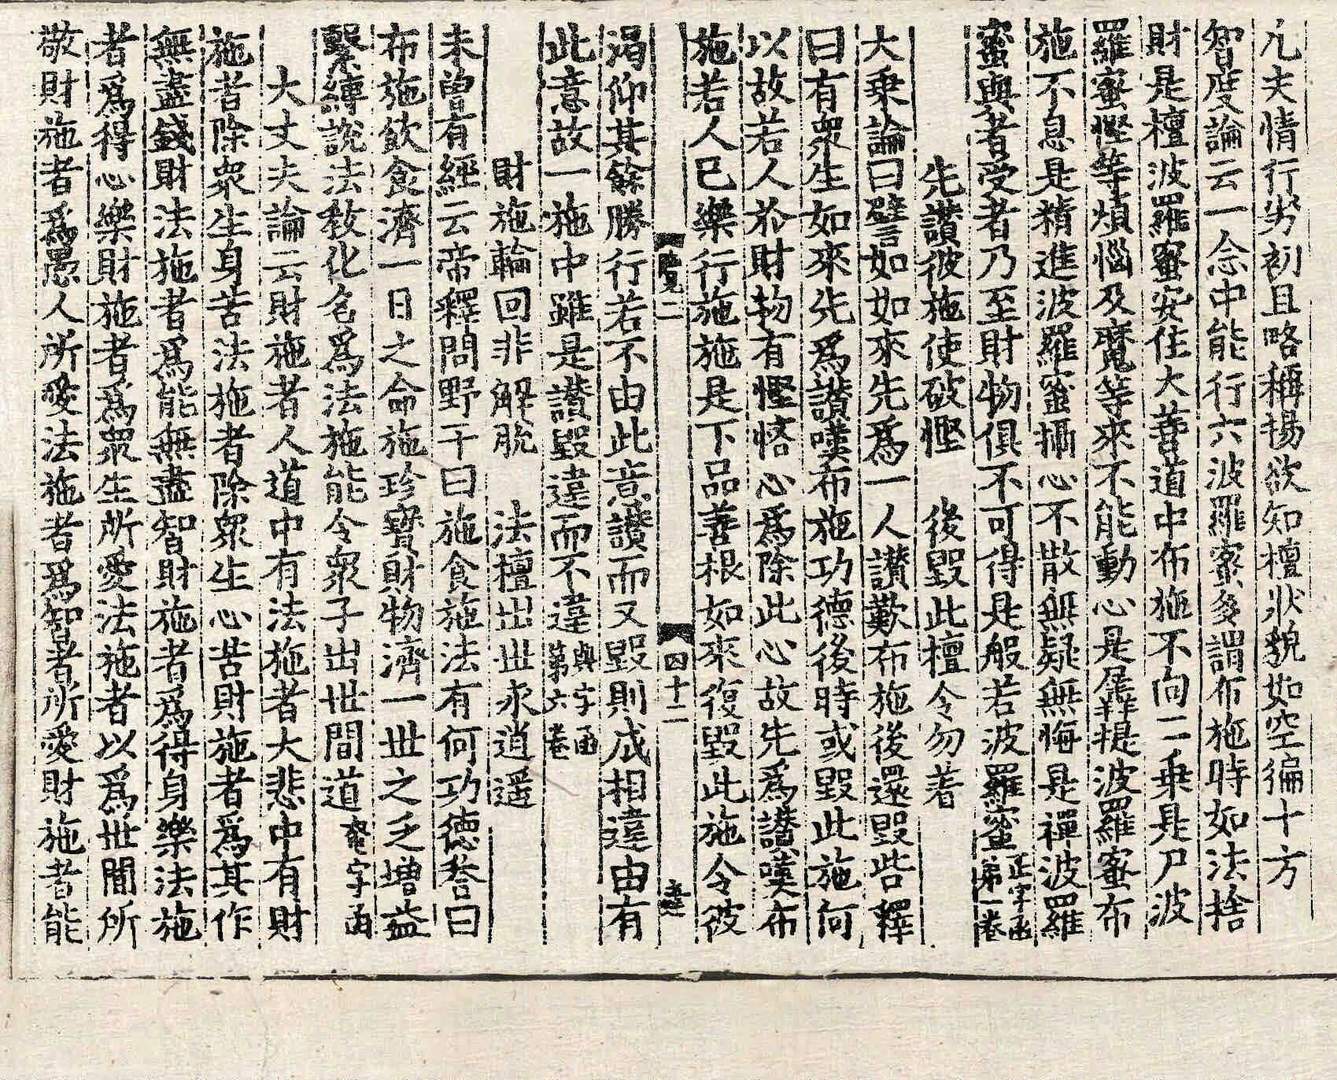 凢夫情行劣初且略稱揚欲知檀狀貌如空徧十方
智度論云一念中能行六波羅蜜多謂布施時如法捨
財是檀波羅蜜安住大善道中布施不向二乗是尸波
羅蜜慳等煩惱及魔等來不能動心是羼提波羅蜜布
施不息是精進波羅蜜攝心不散無疑無悔是禪波羅
蜜與者受者乃至財物俱不可得是般若波羅蜜正字函第一卷
先讃彼施使破慳　後毀此檀令勿著
大乗論曰譬如如來先爲一人讃歎布施後還毀呰釋
曰有衆生如來先爲讃嘆布施功德後時或毀此施何
以故若人於財物有慳悋心爲除此心故先爲讃嘆布
施若人已樂行施施是下品善根如來復毀此施令彼
四十二
渴仰其餘勝行若不由此意讃而又毀則成相違由有
此意故一施中雖是讃毀違而不違與字函第六卷
財施輪回非解脫　法檀出世永逍遥
未曽有經云帝釋問野干曰施食施法有何功德荅曰
布施飲食濟一日之命施珍寶財物濟一世之乏增益
繫縛說法敎化名爲法施能令衆子出世間道字函
大丈夫論云財施者人道中有法施者大悲中有財
施者除衆生身苦法施者除衆生心苦財施者爲其作
無盡錢財法施者爲能無盡智財施者爲得身樂法施
者爲得心樂財施者爲衆生所愛法施者以爲世間所
敬財施者爲愚人所愛法施者爲智者所愛財施者能